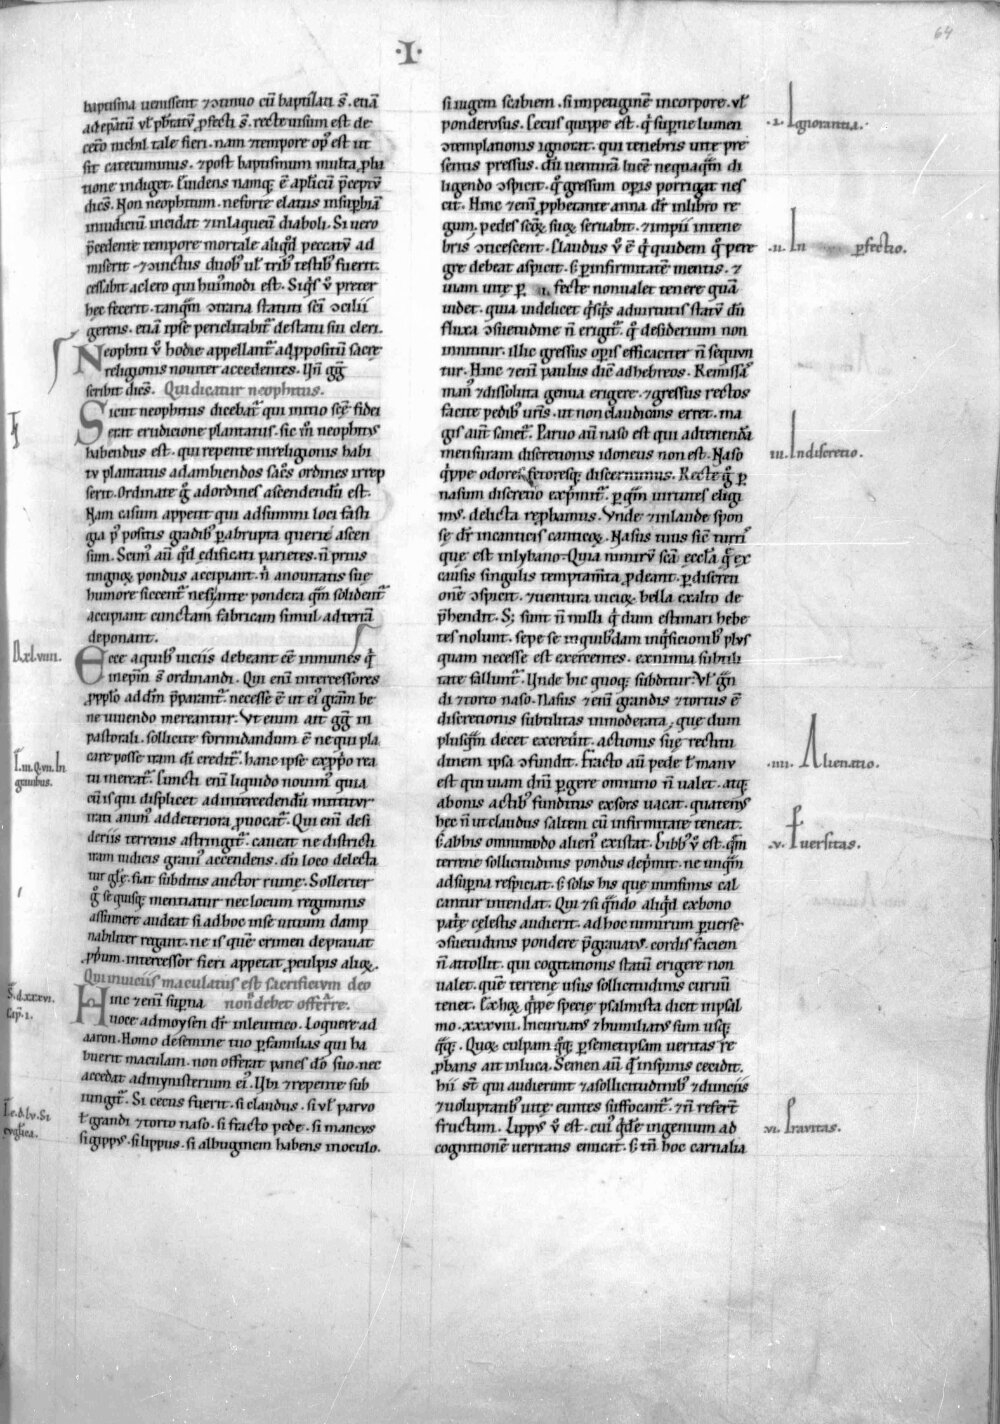 64
·I·
baptisma uenissent ⁊ ↄtinuo cū baptizati s̄. etiā
ad ep̄atū ul̓ p̄bratū ꝓfecti s̄. recte uisum est de
cetero nichil tale fieri. nam ⁊ tempore op̓ est ut
sit catecuminus. ⁊ post baptismum multa ꝓba
tione indiget. Euidens namq; ē aplicū p̄ceptū
dicēs. Non neophitum. ne forte elatus in supbiā
in iudiciū incidat ⁊ in laqueū diaboli. Si uero
p̄cedente tempore mortale aliqd̄ peccatū ad
miserit ⁊ ↄuictus duob; ul̓ trib; testib; fuerit.
cessabit a clero qui hui̓modi est. Siqs̄ ū preter
hec fecerit. tanqm̄ ↄtraria statuti sc̄i ↄcilii
gerens. etiā ipse periclitabit̄ de statu sui cleri.
Neophiti ū hodie appellant̄ ad ꝓpositū sacre
religionis nouiter accedentes. Un̄ gḡ
scribit dicēs. Qui dicatur neophitus.
Sicut neophitus dicebat̄ qui initio scē fidei
erat erudicione plantatus. sic m̊ neophitus
habendus est. qui repente in religionis habi
tu plantatus ad ambiendos sac̄os ordines irrep
serit. Ordinate g̊ ad ordines ascendendū est.
Nam casum appetit qui ad summi loci fasti
gia p̓positis gradib; p abrupta querit ascen
sum. Scim̓ aū qd̄ edificati parietes. n̄ prius
tignoꝝ pondus accipiunt. n̓ a nouitatis sue
humore siccent̄. ne si ante pondera qm̄ solident̄
accipiant cunctam fabricam simul ad terrā
deponant.
D. xl. uiiii.
Ecce a quib; uiciis debeant ēē inmunes q̓
in ep̄m s̄ ordinandi. Qui enī intercessores
ꝓ pplo ad dm̄ p̄parant̄. necesse ē ut ei̓ grām be
ne uiuendo mereantur. Vt enim ait gḡ in
pastorali. sollicite formidandum ē ne qui pla
care posse iram di credit̄. hanc ipse ex ꝓp̓o rea
tu mereat̄. Cuncti enī liquido nouim̓ quia
cū is qui displicet ad intercedendū mittitur
irati anim̓ ad deteriora ꝓuocat̄. Qui enī desi
deriis terrenis astringit̄. caueat ne districti
iram iudicis graui̓ accendens. dū loco delecta
tur glē. fiat subditis auctor ruine. Sollerter
g̊ se quisq; metiatur ne locum regiminis
assumere audeat si adhoc in se uitium damp
nabiliter regnat. ne is quē crimen deprauat
ꝓp̓um. intercessor fieri appetat ꝓ culpis alioꝝ.
Qui in uiciis maculatus est sacrificium deo
non debet offerre.
Hinc ⁊ enī supna
uoce ad moysen dr̄ in leuitico. Loquere ad
aaron. Homo de semine tuo p familias qui ha
buerit maculam. non offerat panes dō suo. nec
accedat ad mynisterium ei̓. Ubi ⁊ repente sub
iungit̄. Si cecus fuerit. si claudus. si ul̓ paruo
ł grandi ⁊ torto naso. si fracto pede. si mancus
si gippus. si lippus. si albuginem habens in oculo.
si iugem scabiem. si impetiginē in corpore. ul̓
ponderosus. Cecus quippe est. q̓ supne lumen
ↄtemplationis ignorat. qui tenebris uite pre
sentis pressus. dū uenturā lucē nequaqm̄ di
ligendo ↄspicit. q̊ gressum opis porrigat nes
cit. Hinc ⁊ enī ꝓphetante anna dr̄ in libro re
gum. pedes scōꝝ suoꝝ seruabit. ⁊ impii in tene
bris ↄticescent. Claudus ū ē q̓ quidem q̊ pere
gre debeat aspicit. s; p infirmitatē mentis. ⁊
uiam uite pfecte non ualet tenere quā
uidet. quia uidelicet q̓sq̓s ad uirtutis statū dū
fluxa ↄsuetudine n̄ erigit̄. q̊ desiderium non
innititur. illic gressus opis efficaciter n̄ sequun
tur. Hinc ⁊ enī paulus dicit ad hebreos. Remissas
man̓ ⁊ dissoluta genua erigite. ⁊ gressus rectos
facite pedib; uris. ut non claudicans erret. ma
gis aūt sanet̄. Paruo aū naso est qui ad tenendā
mensuram discretionis idoneus non est. Naso
q̓ppe odores fetoresq; discernimus. Recte g̊ p
nasum discretio exp̓mit̄. p qm̄ uirtutes eligi
m̓. delicta reprobamus. Vnde ⁊ in laude spon
se dr̄ in canticis canticoꝝ. Nasus tuus sicut turris
que est in lybano. Quia nimirū scā eccla q̄ ex
causis singulis temptam̄ta ꝓdeant. p discreti
onē ↄspicit. ⁊ uentura uicioꝝ bella ex alto de
p̄hendit. S; sunt n̄nulli q̓ dum estimari hebe
tes nolunt. sepe se in quib;dam inq̓sicionib; plus
quam necesse est exercentes. ex nimia subtili
tate fallunt̄. Unde hic quoq; subditur. Ul̓ grn̄
di ⁊ torto naso. Nasus ⁊ enī grandis ⁊ tortus ē
discretionis subtilitas inmoderata. que dum
plusqm̄ decet excreuit. actionis sue rectitu
dinem ipsa ↄfundit. Fracto aū pede ł manu
est qui uiam di pergere omnino n̄ ualet. atq;
a bonis actib; funditus exsors uacat. quatenus
hec n̄ ut claudus saltem cū infirmitate teneat.
s; ab his omnimodo alien̓ existat. Gibb; ū est. qm̄
terrene sollicitudinis pondus dep̓mit. ne unqm̄
ad supna respiciat. s; solis his que in infimis cal
cantur intendat. Qui ⁊ si q̄ndo aliqd̄ ex bono
patrie celestis audierit. ad hoc nimirum puerse
ↄsuetudinis pondere p̄grauatus. cordis faciem
n̄ attollit. qui cogitationis statū erigere non
ualet. quē terrene usus sollicitudinis curuū
tenet. Ex hoꝝ q̓ppe specie psalmista dicit in psal
mo. xxxviii. Incuruatus ⁊ humiliatus sum usq;
q̄q;. Quoꝝ culpam q̊q; p semetipsam ueritas re
ꝓbans ait in luca. Semen aū q̊ in spinis cecidit.
hii st̄ qui audierunt ⁊ a sollicitudinib; ⁊ diuiciis
⁊ uoluptatib; uite euntes suffocant̄. ⁊ n̄ referēt
fructum. Lippus ū est. cui̓ q̓de ingenium ad
cognitionem ueritatis emicat. s; tn̄ hoc carnalia
.i. Ignorantia.
.ii. In pfectio.
iii. Indiscretio.
.iiii. Alienatio.
.v. Puersitas.
.vi. Prauitas.